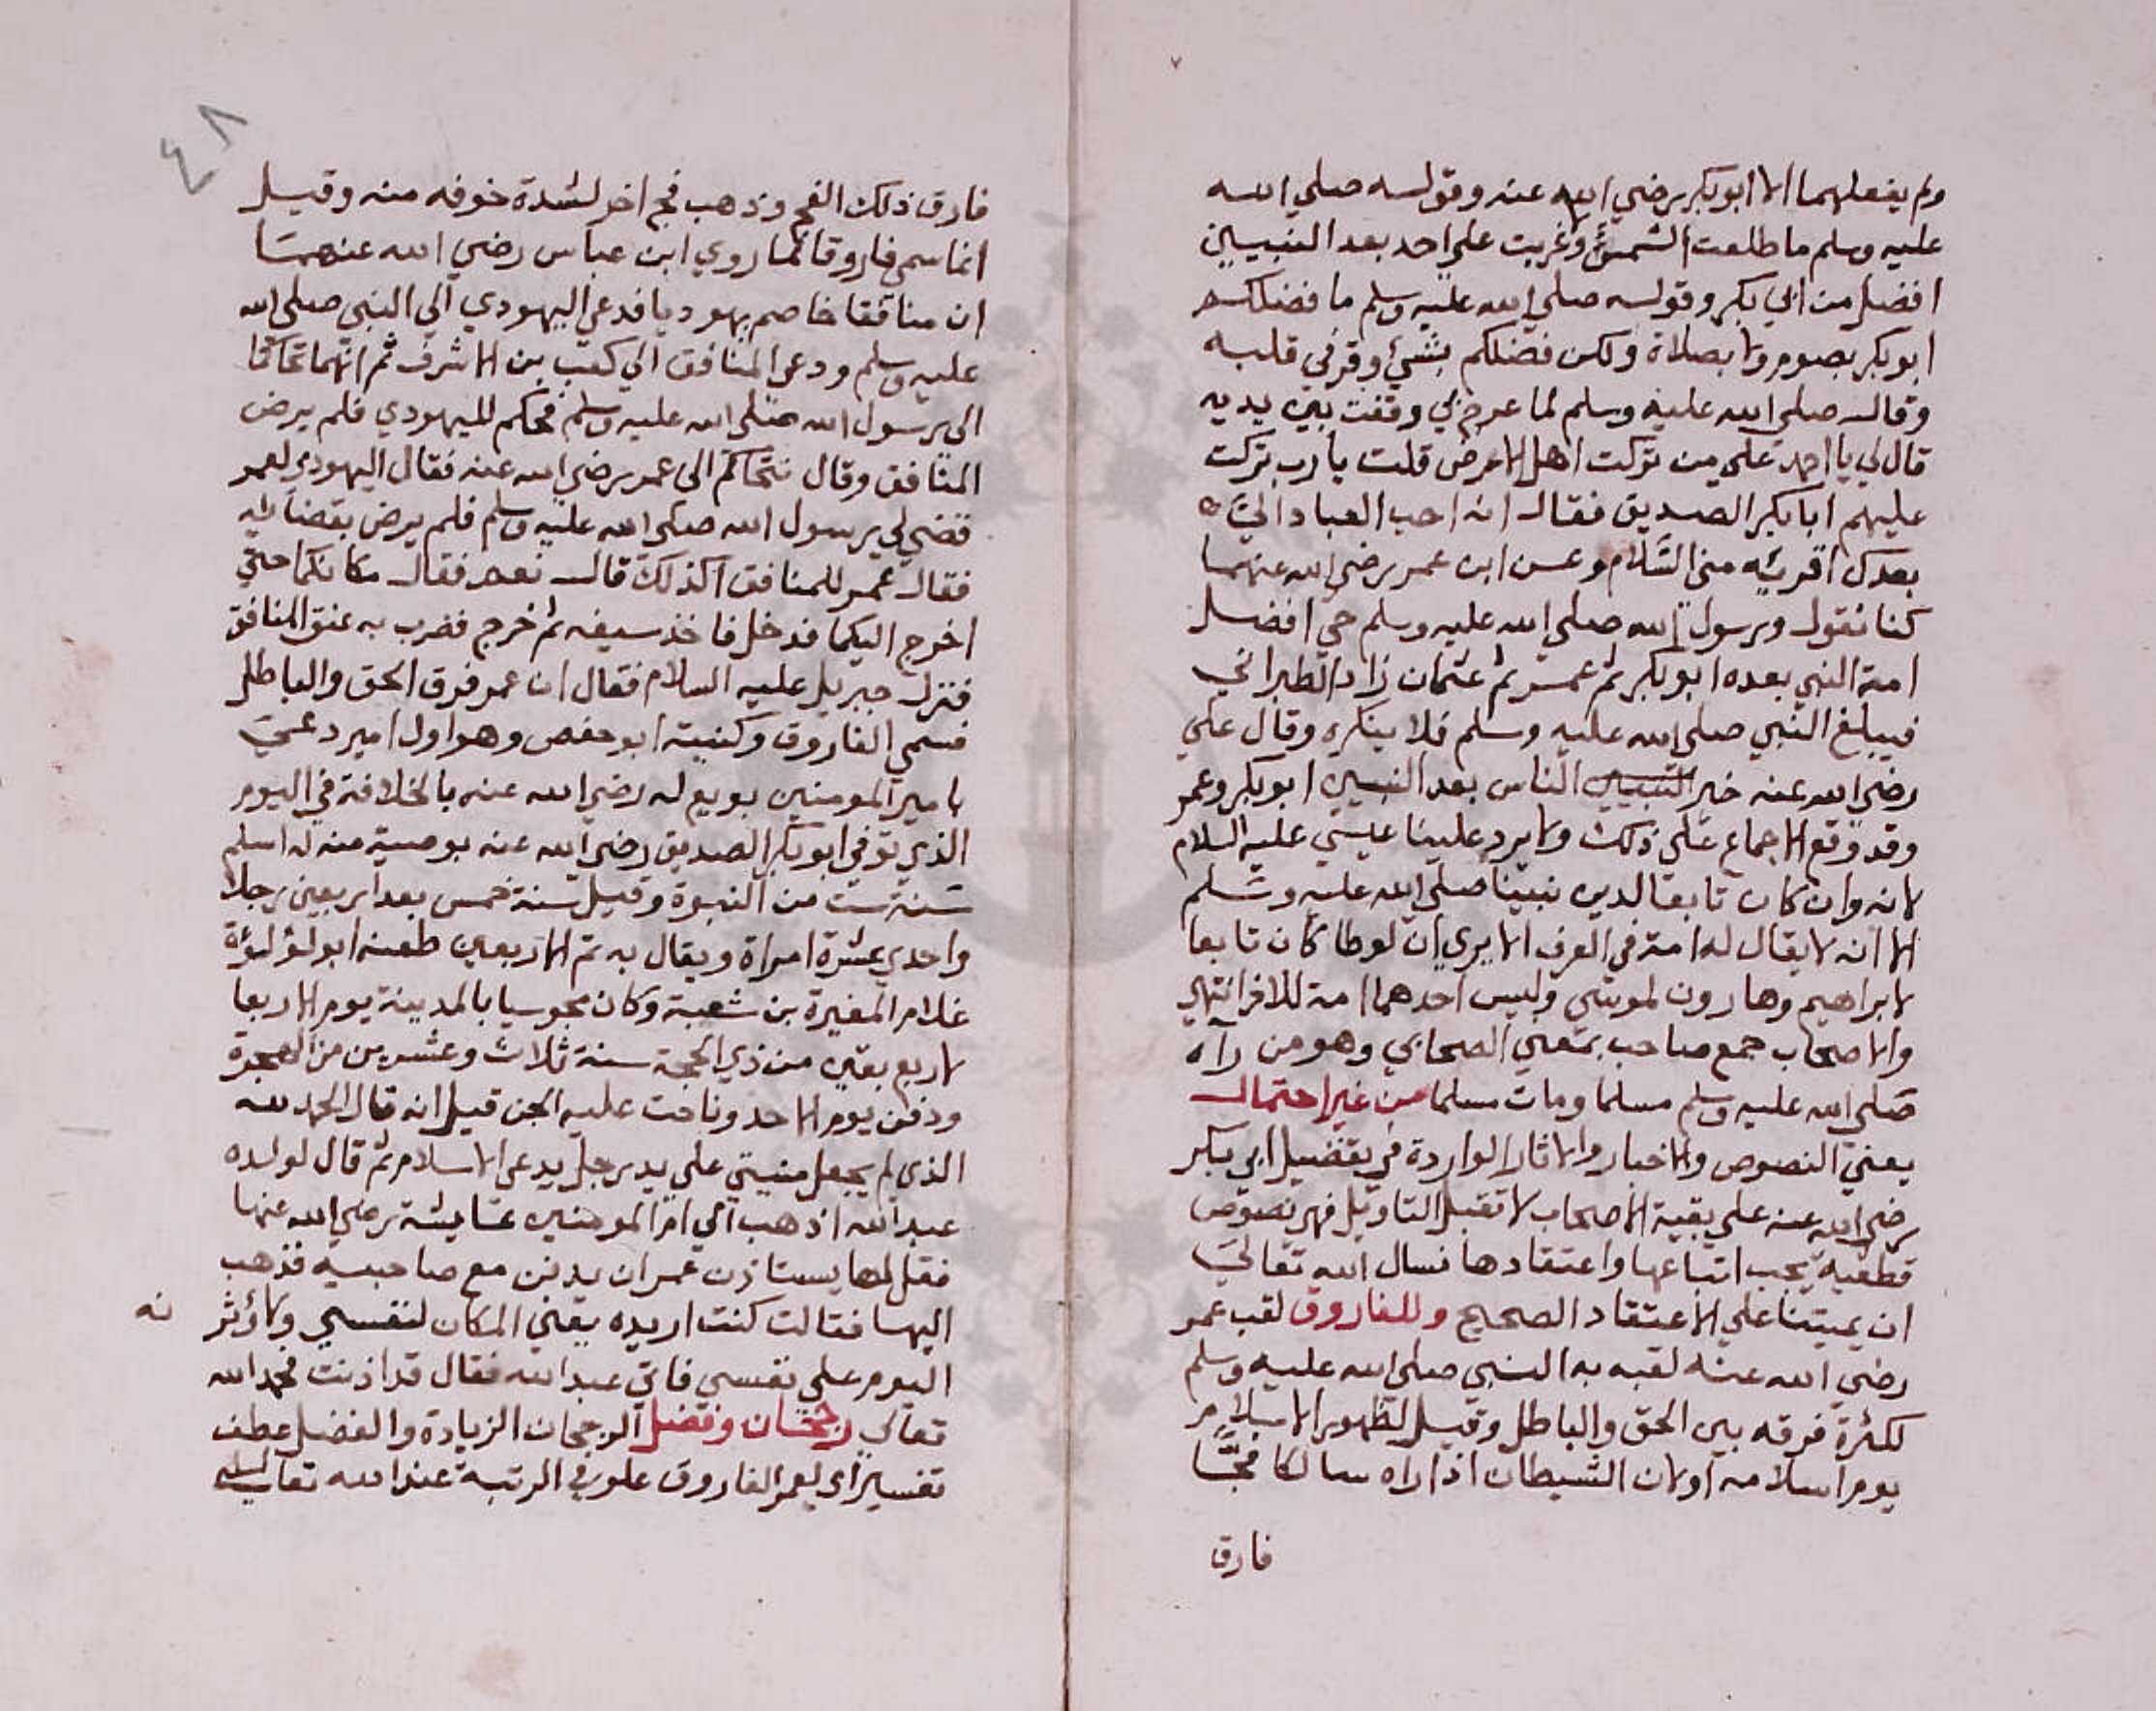 ولم يفعلهما الا ابوبكر رضي الله عنه وقوله صلي الله
عليه وسلم ما طلعت الشمس وغربت علي احد بعد النبيين
افضل من ابي بكر وقوله صلي الله عليه وسلم ما فضلكم
ابوبكر بصوم ولا بصلاة ولكن فضلكم بشيء وقر في قلبه
وقال صلي الله عليه وسلم لما عرج بي وقفت بين يديه
قال لي يا احمد علي من تركت اهل الارض قلت يا رب تركت
عليهم ابا بكر الصديق فقال انه احب العباد الي
بعدك اقريه مني السلام وعن ابن عمر رضي الله عنهما
كنا نقول ورسول الله صلي الله عليه وسلم حي افضل
امة النبي بعده ابوبكر ثم عمر ثم عثمان زاد الطبراني
فيبلغ النبي صلي الله عليه وسلم فلا ينكره وقال علي
رضي الله عنه خير الناس بعد النبيين ابوبكر وعمر
وقد وقع الاجماع علي ذلك ولا يرد علينا عيسي عليه السلام
لانه وان كان تابعا لدين نبينا صلي الله عليه وسلم
الا انه لا يقال له امة في العرف الا يري ان لوطا كان تابعا
لابراهيم وهارون لموسي وليس احدهما امة للاخر انتهي
والاصحاب جمع صاحب بمعني الصحابي وهو من رآه
صلي الله عليه وسلم مسلما ومات مسلما من غير احتمال
يعني النصوص والاخبار والاثار الواردة في تفضيل ابي بكر
رضي الله عنه علي بقية الاصحاب لا تقبل التاويل فهي نصوص
قطعية يجب اتباعها واعتقادها نسال الله تعالي
ان يميتنا علي الاعتقاد الصحيح وللفاروق لقب عمر
رضي الله عنه لقبه به النبي صلي الله عليه وسلم
لكثرة فرقه بين الحق والباطل وقيل لظهور الاسلام
يوم اسلامه اولان الشيطان اذا راه سالكا فجا
فارق
٤٨
فارق ذلك الفج وذهب فج اخر لشدة خوفه منه وقيل
انما سمي فاروقا لما روي ابن عباس رضي الله عنهما
ان منافقا خاصم يهوديا فدعي اليهودي الي النبي صلي الله
عليه وسلم ودعي المنافق الي كعب بن الاشرف ثم انهما تحاكما
الي رسول الله صلي الله عليه وسلم فحكم لليهودي فلم يرض
المنافق وقال نتحاكم الي عمر رضي الله عنه فقال اليهودي لعمر
قضي لي رسول الله صلي الله عليه وسلم فلم يرض بقضايه
فقال عمر للمنافق اكذلك قال نعم فقال مكانكما حتي
اخرج اليكما فدخل فاخذ سيفه ثم خرج فضرب به عنق المنافق
فنزل جبريل عليه السلام فقال ان عمر فرق الحق والباطل
فسمي الفاروق وكنيته ابوحفص وهو اول امير دعي
بامير المومنين بويع له رضي الله عنه بالخلافة في اليوم
الذي توفي ابوبكر الصديق رضي الله عنه بوصية منه له اسلم
سنة ست من النبوة وقيل سنة خمس بعد اربعين رجلا
واحدي عشرة امراة ويقال به تم الاربعين طعنه ابولؤلؤة
غلام المغيرة بن شعبة وكان مجوسيا بالمدينة يوم الاربعا
لاربع بقين من ذي الحجة سنة ثلاث وعشرين من الهجرة
ودفن يوم الاحد وناحت عليه الجن قيل انه قال الحمد لله
الذي لم يجعل منيتي علي يد رجل يدعي الاسلام ثم قال لولده
عبد الله اذهب الي ام المومنين عايشة رضي الله عنها
فقل لها يستاذن عمر ان يدفن مع صاحبيه فذهب
اليها فقالت كنت اريده يعني المكان لنفسي ولاؤثر
نه
اليوم علي نفسي فاتي عبد الله فقال قد اذنت فحمد الله
تعالي رجحان وفضل الرجحان الزيادة والفضل عطف
تفسير اي لعمر الفاروق علو في الرتبة عند الله تعالي